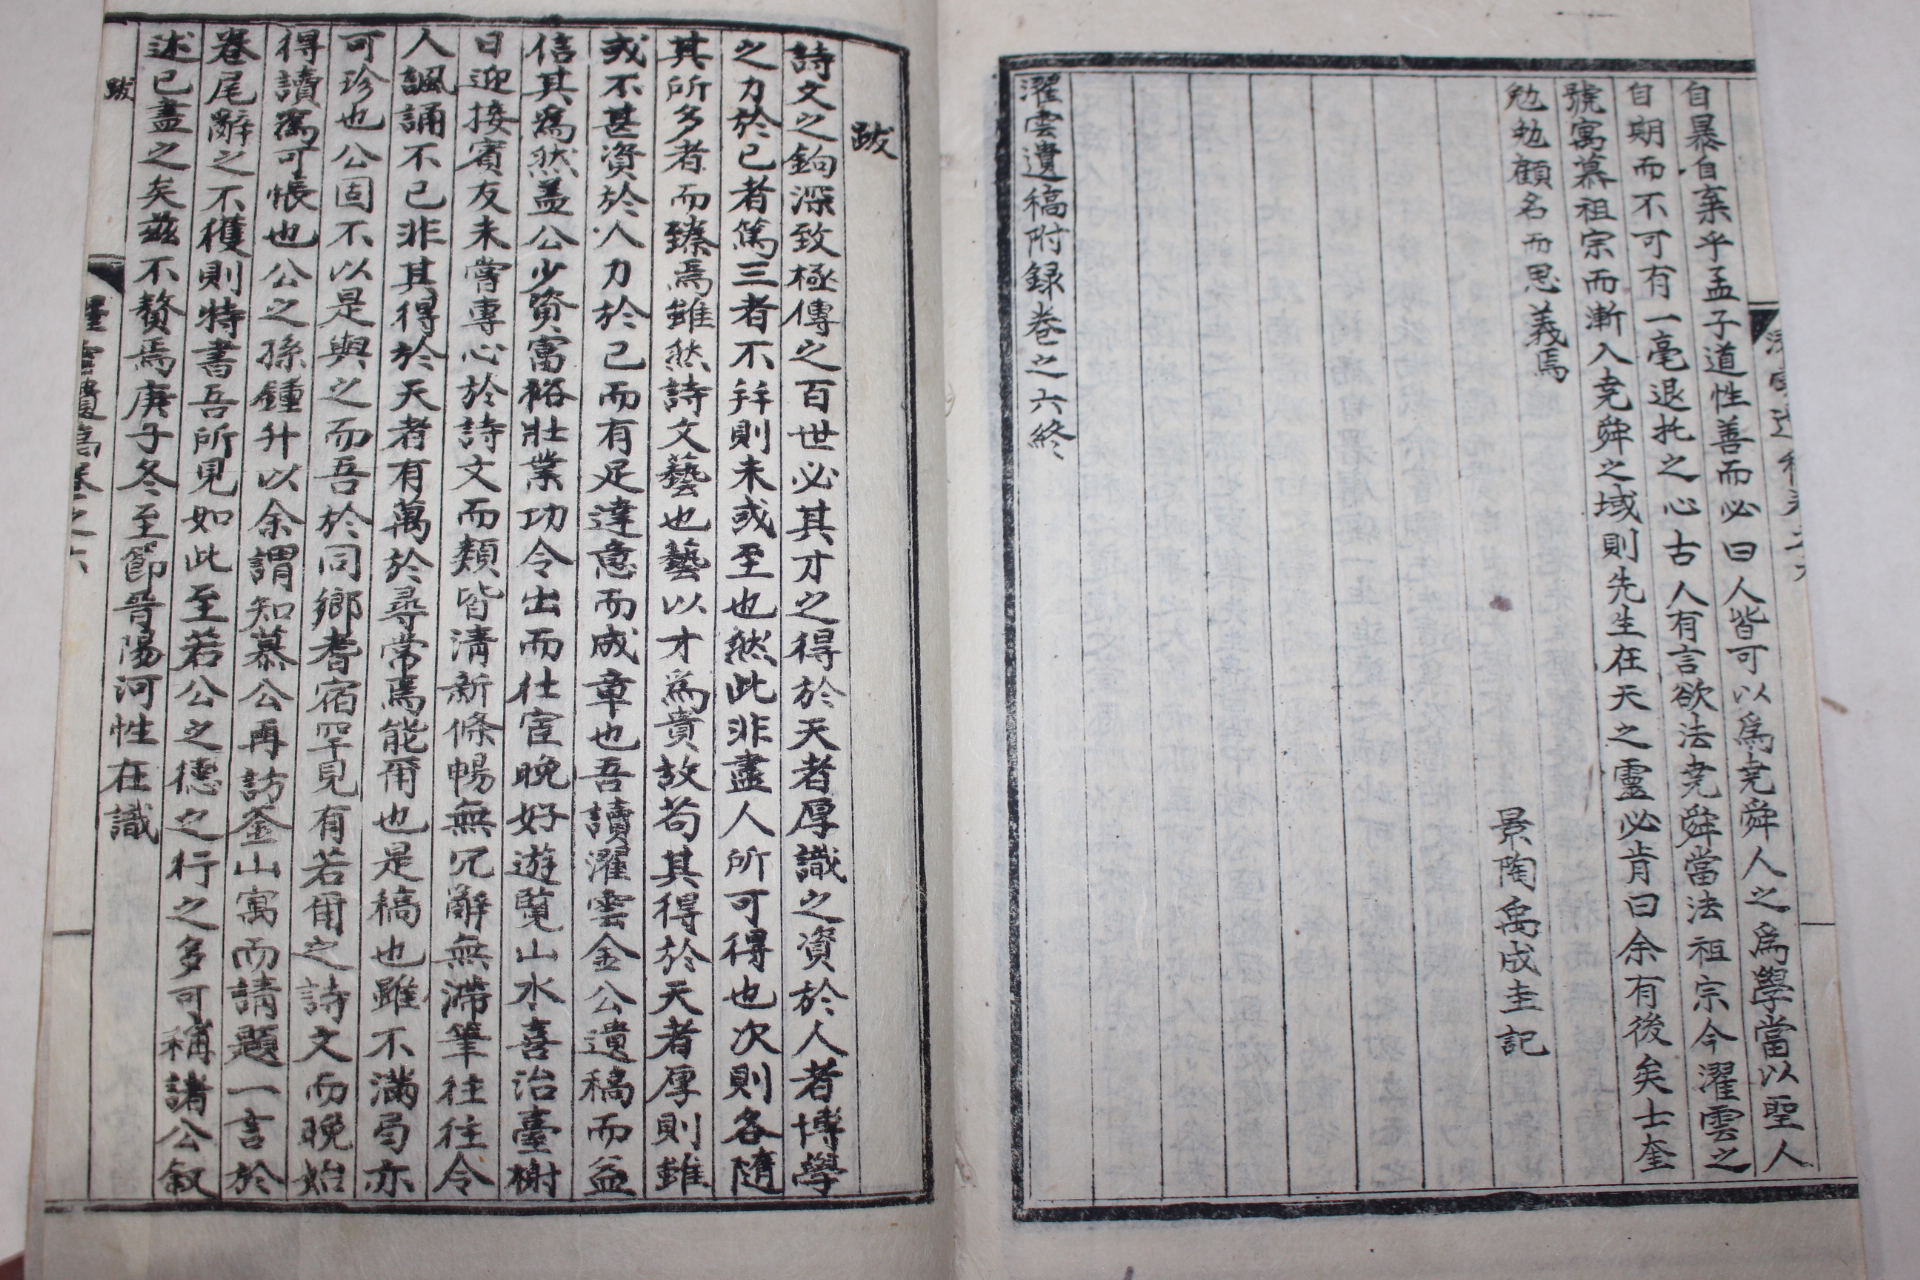 自暴自棄乎孟子道性善而必曰人皆可以爲堯舜人之爲學當以聖人
自期而不可有一毫退托之心古人有言欲法堯舜當法祖宗今濯雲之
號寓慕祖宗而漸入堯舜之域則先生在天之靈必肯曰余有後矣士奎
勉勉顧名而思義焉
景陶禹成圭記
濯雲遺稿附録卷之六終
跋
詩文之鉤深致極傳之百世必其才之得於天者厚識之資於人者博學
之力於已者篤三者不幷則未或至也然此非盡人所可得也次則各隨
其所多者而臻焉雖然詩文藝也藝以才爲貴故苟其得於天者厚則雖
或不甚資於人力於己而有足達意而成章也吾讀濯雲金公遺稿而益
信其爲然盖公少資富裕壯業功令出而仕宦晚好遊覽山水喜治臺榭
日迎接賓友未嘗專心於詩文而類皆淸新條暢無冗辭無滯筆往往令
人諷誦不已非其得於天者有萬於尋常焉能爾也是稿也雖不滿局亦
可珍也公固不以是與之而吾於同鄉耆宿罕見有若爾之詩文而晚始
得讀爲可悵也公之孫鍾升以余謂知慕公再訪釜山寓而請題一言於
卷尾辭之不獲則特書吾所見如此至若公之德之行之多可稱諸公叙
述已盡之矣玆不贅焉庚子冬至節晉陽河性在識
跋
濯雲遺稿卷之六